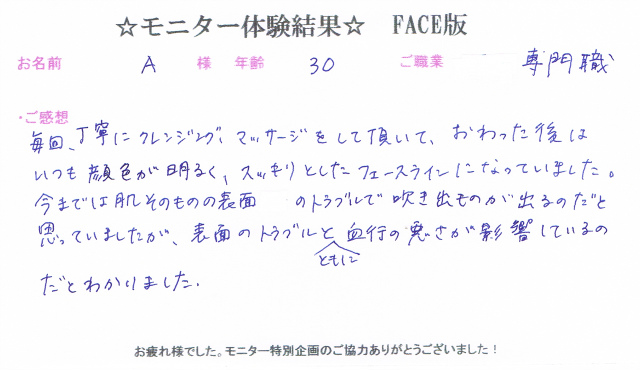 ☆モニター体験結果☆ FACE版
お名前 A 様 年齢 30 ご職業 専門職
・ご感想
毎回、丁寧にクレンジング、マッサージをして頂いて、おわった後は
いつも顔色が明るく、スッキリとしたフェースラインになっていました。
今までは肌そのものの表面 のトラブルで吹き出ものが出るのだと
思っていましたが、表面のトラブルと血行の悪さが影響しているの
ともに
だとわかりました.
お疲れ様でした。モニター特別企画のご協力ありがとうございました！